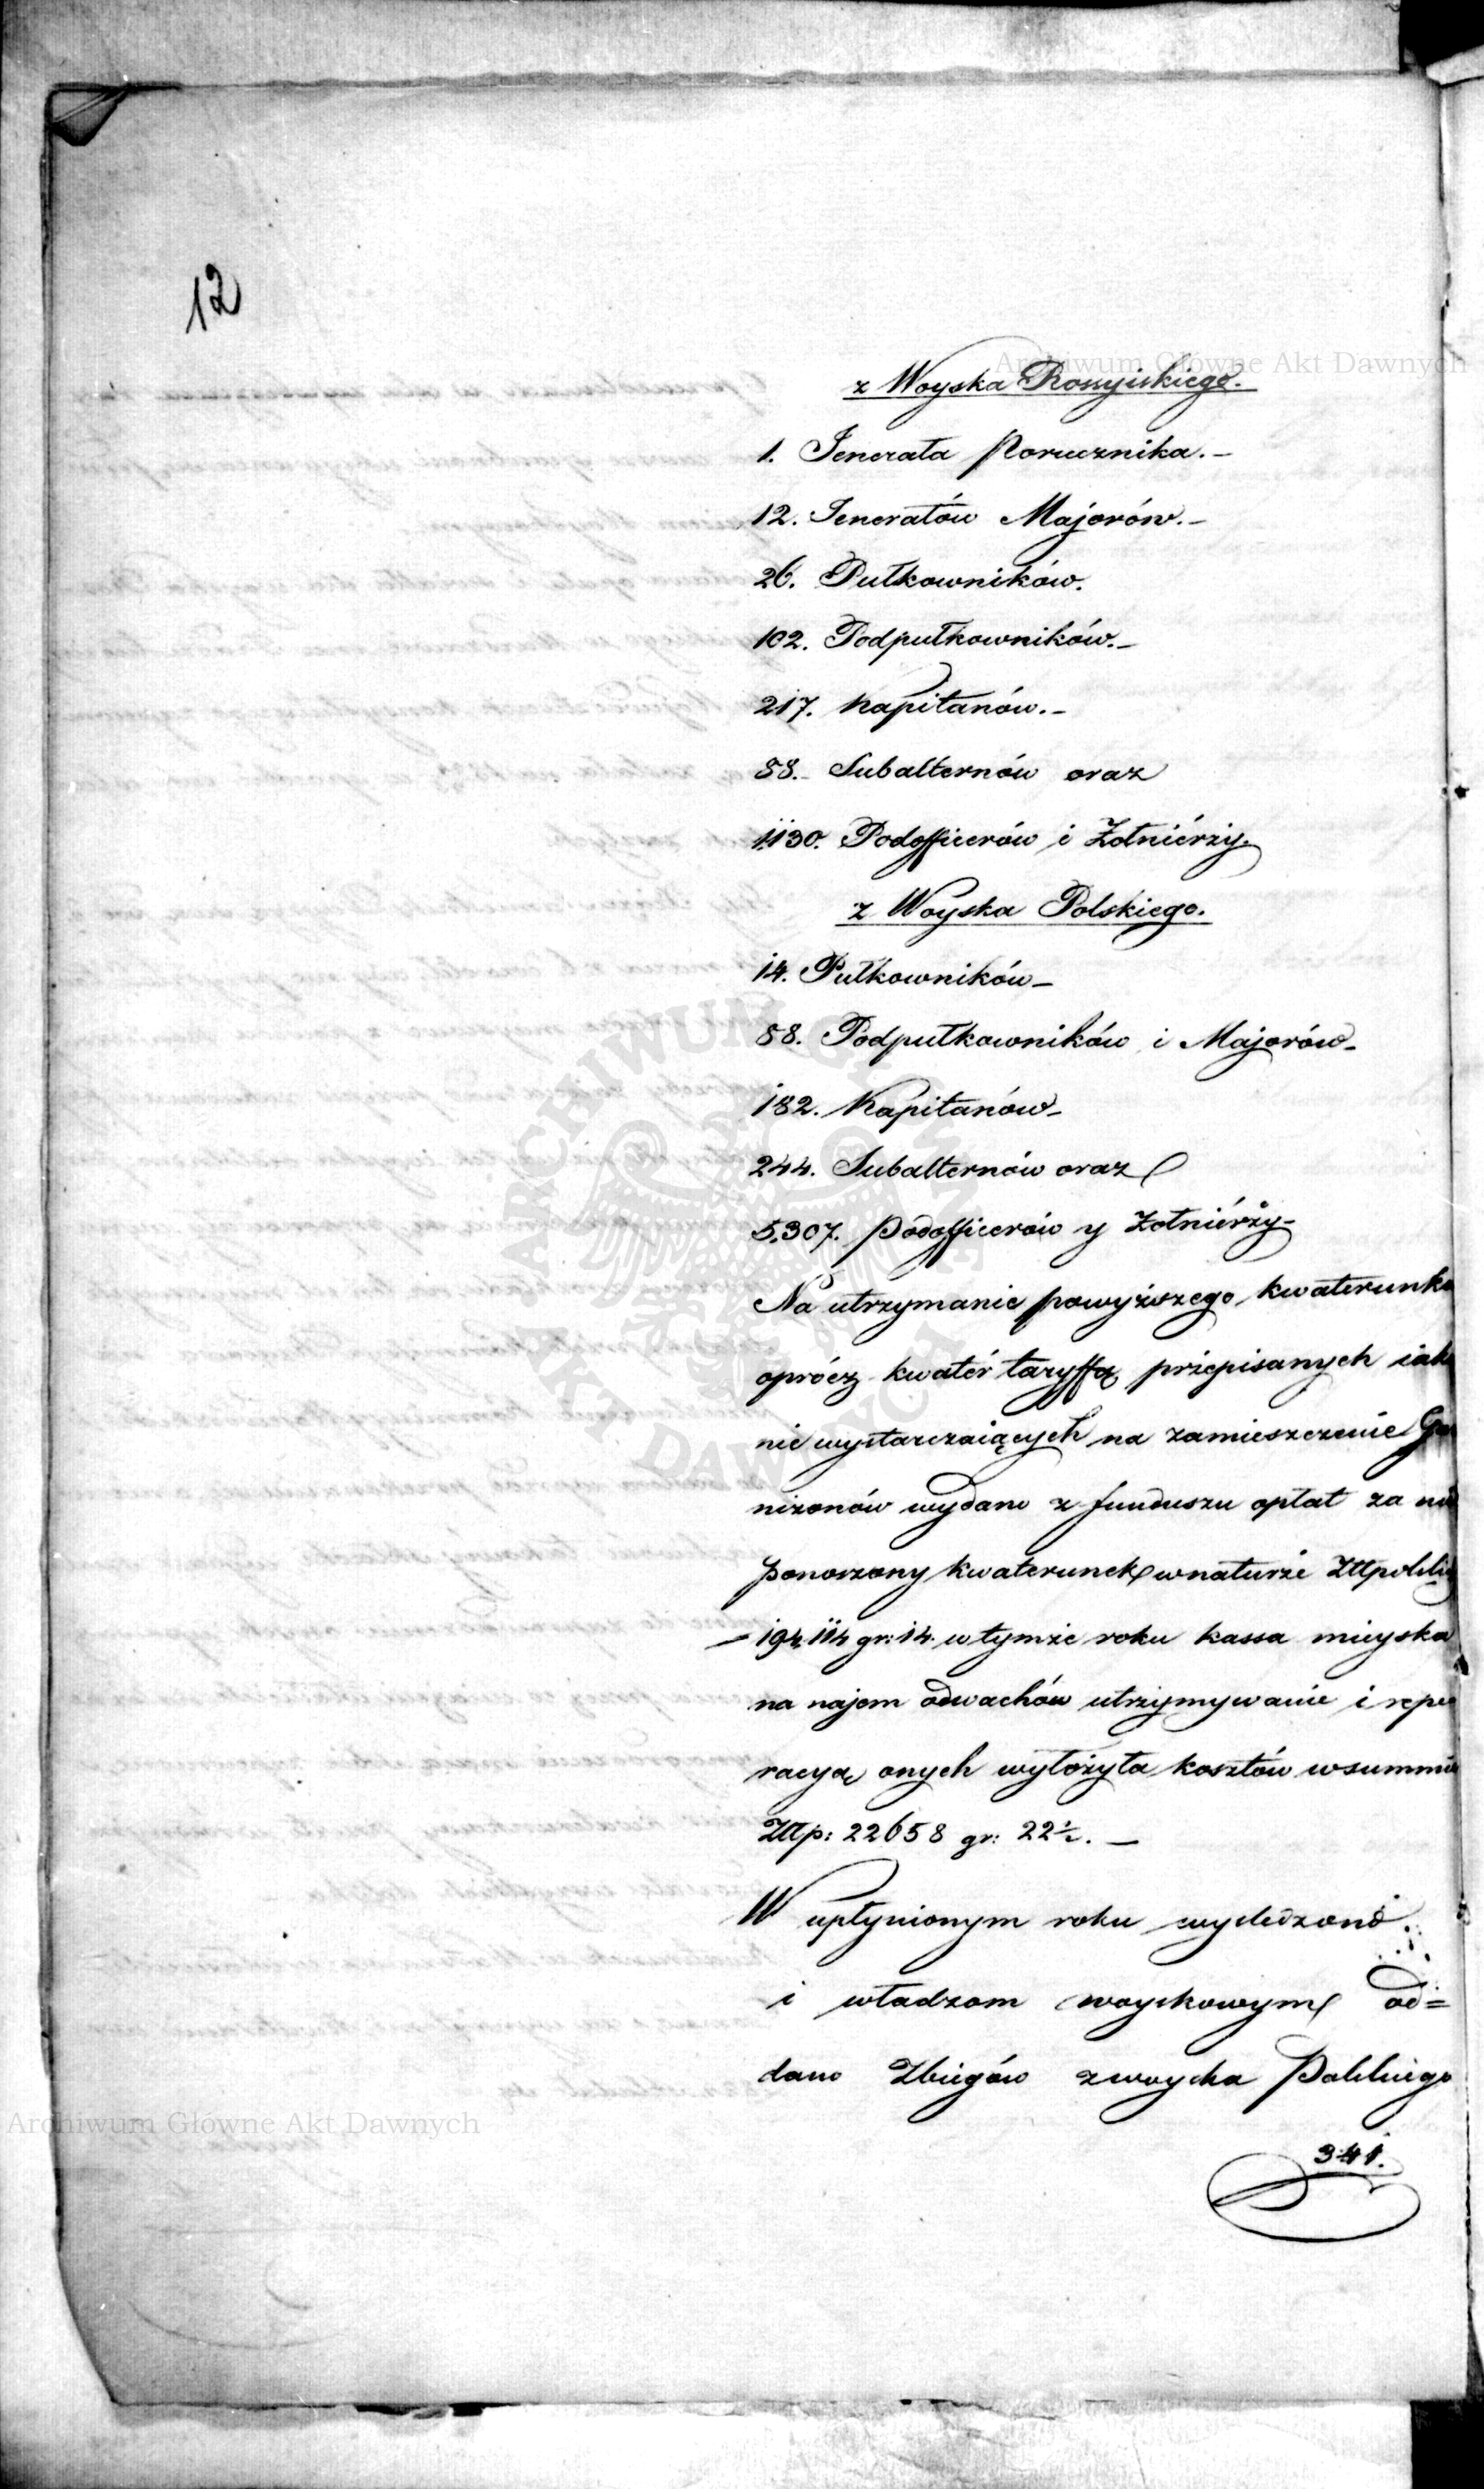 12
Archiwum Główne Akt Dawnych
z Woyska Rossyiskiego.
1. Jenerała Porucznika.-
12. Jenerałów Majorów.-
26. Pułkowników.
102. Podpułkowników.-
217. Kapitanów.-
88. Subalternów oraz
1130. Podofficerów i Żołniérży.
z Woyska Polskiego.
14. Pułkowników-
88. Podpułkowników i Majorów-
182. Kapitanów-
244. Subalternów oraz
5,307. Podofficerów y Żołniérży-
Na utrzymanie powyższego kwaterunku
oprócz kwatér taryffą przepisanych iako
nie wystarczaiących na zamieszczenie Gar
nizonów wydano z funduszu opłat za nie
ponoszony kwaterunek w naturze Złtpolskich
194,114 gr: 14. w tymże roku kassa mieyska
na najem odwachów utrzymywanie i repe
racyą onych wyłożyła kosztów w summie
Złtp: 22658 gr: 22½. —
W upłynionym roku wyśledzono
i władzom woyskowym od=
dano Zbiegów z woyska Polskiego
341.
ARCHIWUM GŁÓWNE
AKT DAWNYCH
Archiwum Główne Akt Dawnych